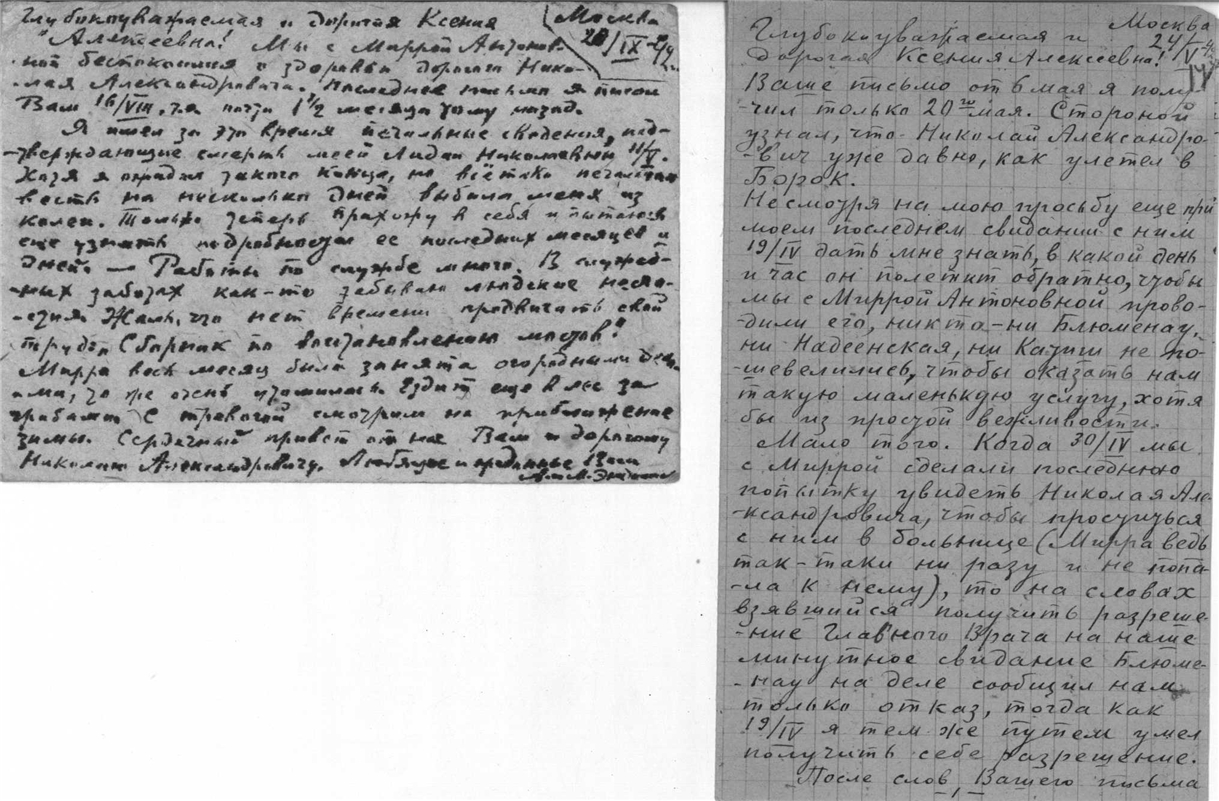 Глубокоуважаемая и дорогая Ксения
Москва
Алексеевна! Мы с Миррой Антонов-
28/IX
ной беспокоимся о здоровьи дорогого Нико-
-лая Александровича. Последнее письмо я писал
Вам 16/VIII, т.е. почти 1½ месяца тому назад.
Я имел за это время печальные сведения, под-
-тверждающие смерть моей Лидии Николаевны 11/V.
Хотя я ожидал такого конца, но всетаки печальная
весть на несколько дней выбила меня из
колеи. Только теперь прихожу в себя и пытаюсь
еще узнать подробности ее последних месяцев и
дней. — Работы по службе много. В служеб-
-ных заботах как-то забываю людские несча-
-стия. Жаль, что нет времени продвигать свой
труд "Сборник по восстановлению мостов".
Мирра весь месяц была занята огородными дела-
-ми, то же очень утомилась. Ездит еще в лес за
грибами. С тревогой смотрим на приближение
зимы. Сердечный привет от нас Вам и дорогому
Николаю Александровичу. Любящие и преданные Вам
А. и М.
Москва
Глубокоуважаемая и
24/V
дорогая Ксения Алексеевна!
Ваше письмо от 6 мая я полу-
-чил только 20го мая. Стороной
узнал, что Николай Александро-
-вич уже давно, как улетел в
Борок.
Несмотря на мою просьбу еще при
моем последнем свидании с ним
19/IV дать мне знать, в какой день
и час он полетит обратно, чтобы
мы с Миррой Антоновной прово-
-дили его, никто - ни Блюменау,
ни Надеенская, ни Казиш не по-
-шевелились, чтобы оказать нам
такую маленькую услугу, хотя
бы из простой вежливости.
Мало того. Когда 30/IV мы
с Миррой сделали последнюю
попытку увидеть Николая Але-
-ксандровича, чтобы проститься
с ним в больнице (Мирра ведь
так-таки ни разу и не попа-
-ла к нему), то на словах
взявшийся получить разреше-
-ние Главного Врача на наше
минутное свидание Блюме-
-нау на деле сообщил нам
только отказ, тогда как
19/IV я тем же путем умел
получить себе разрешение.
После слов Вашего письма